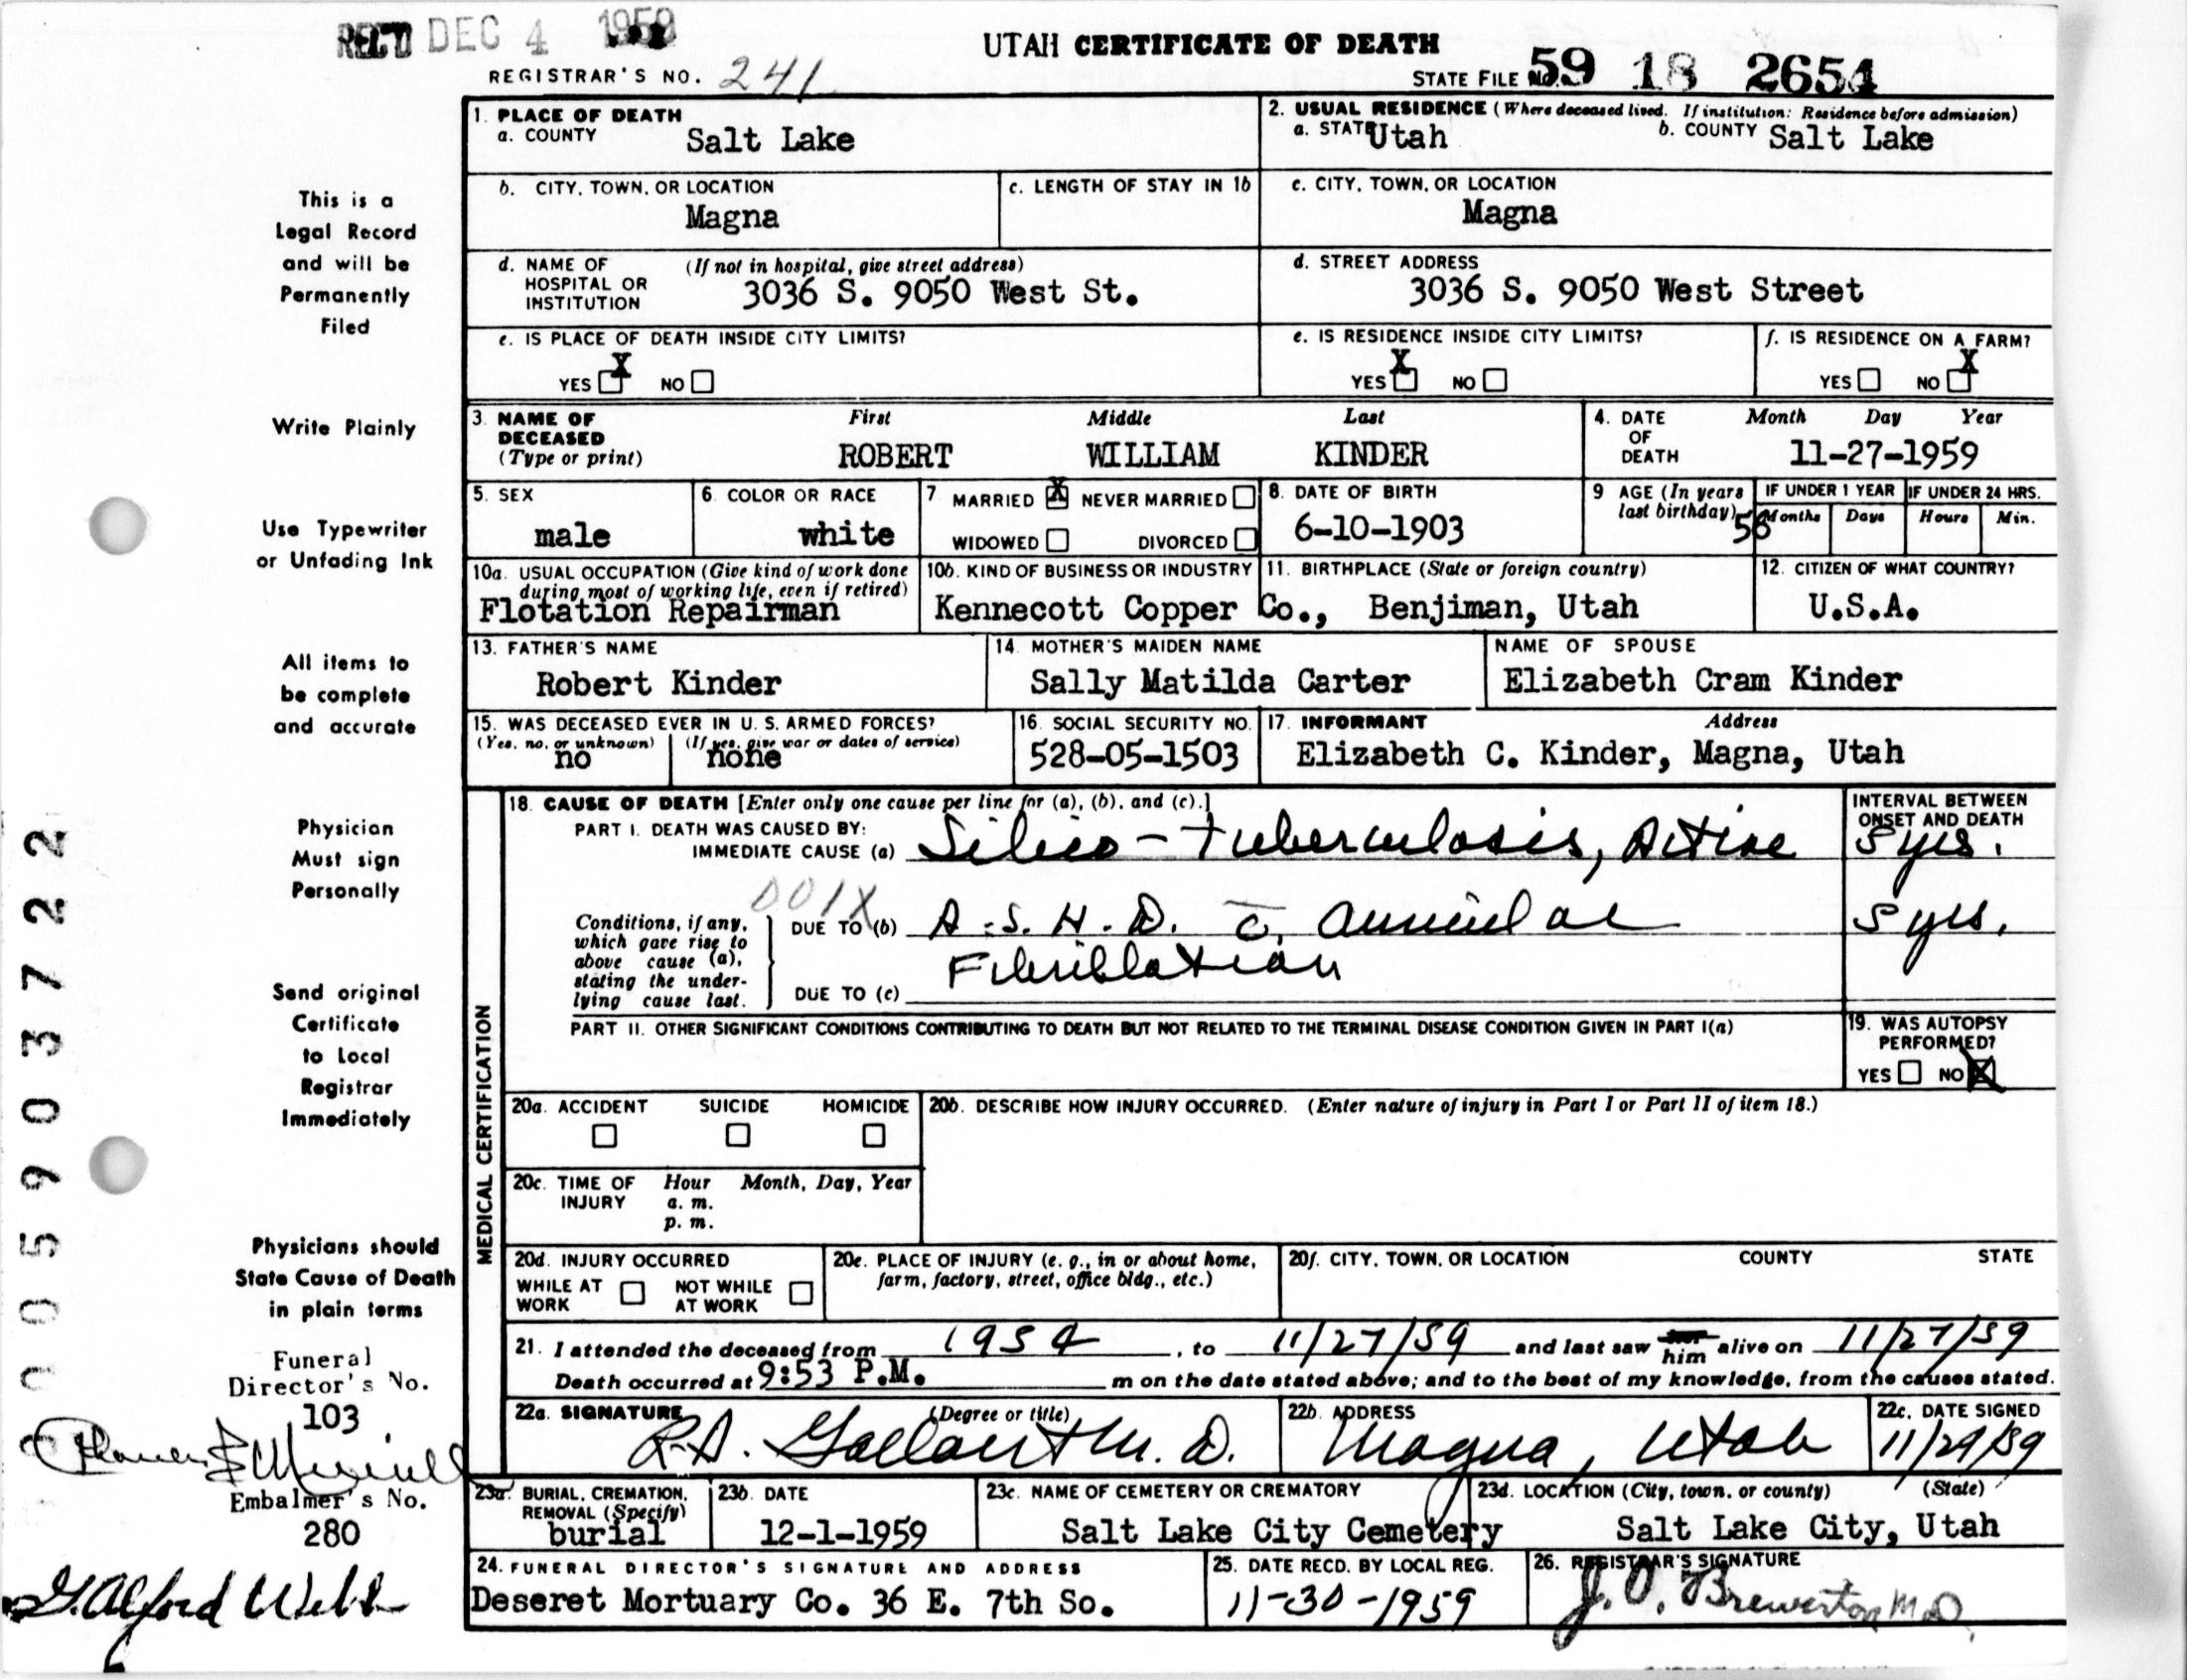 REC'D DEC 4 1959
UTAH CERTIFICATE OF DEATH
REGISTRAR'S NO. 241
STATE FILE NO. 59 18 2654
1. PLACE OF DEATH
a. COUNTY Salt Lake
2. USUAL RESIDENCE (Where deceased lived. If institution: Residence before admission)
a. STATE Utah b. COUNTY Salt Lake
b. CITY, TOWN, OR LOCATION
Magna
c. LENGTH OF STAY IN 1b
c. CITY, TOWN, OR LOCATION
Magna
d. NAME OF HOSPITAL OR INSTITUTION (If not in hospital, give street address)
3036 S. 9050 West St.
d. STREET ADDRESS
3036 S. 9050 West Street
e. IS PLACE OF DEATH INSIDE CITY LIMITS?
YES X NO
e. IS RESIDENCE INSIDE CITY LIMITS?
YES X NO
f. IS RESIDENCE ON A FARM?
YES NO X
3. NAME OF DECEASED (Type or print)
First Middle Last
ROBERT WILLIAM KINDER
4. DATE OF DEATH
Month Day Year
11-27-1959
5. SEX
male
6. COLOR OR RACE
white
7 MARRIED X NEVER MARRIED
WIDOWED DIVORCED
8. DATE OF BIRTH
6-10-1903
9 AGE (In years last birthday) 56
IF UNDER 1 YEAR
Months Days
IF UNDER 24 HRS.
Hours Min.
10a. USUAL OCCUPATION (Give kind of work done during most of working life, even if retired)
Flotation Repairman
10b. KIND OF BUSINESS OR INDUSTRY
Kennecott Copper Co.,
11. BIRTHPLACE (State or foreign country)
Benjiman, Utah
12. CITIZEN OF WHAT COUNTRY?
U.S.A.
13. FATHER'S NAME
Robert Kinder
14. MOTHER'S MAIDEN NAME
Sally Matilda Carter
NAME OF SPOUSE
Elizabeth Cram Kinder
15. WAS DECEASED EVER IN U. S. ARMED FORCES?
(Yes, no, or unknown) (If yes, give war or dates of service)
no none
16. SOCIAL SECURITY NO.
528-05-1503
17. INFORMANT Address
Elizabeth C. Kinder, Magna, Utah
MEDICAL CERTIFICATION
18. CAUSE OF DEATH [Enter only one cause per line for (a), (b), and (c).]
PART I. DEATH WAS CAUSED BY:
IMMEDIATE CAUSE (a) Silico-tuberculosis, Active
INTERVAL BETWEEN ONSET AND DEATH
5 yrs.
001X
Conditions, if any, which gave rise to above cause (a), stating the underlying cause last.
DUE TO (b) A.S.H.D. c̄ auricular
Fibrillation
5 yrs.
DUE TO (c)
PART II. OTHER SIGNIFICANT CONDITIONS CONTRIBUTING TO DEATH BUT NOT RELATED TO THE TERMINAL DISEASE CONDITION GIVEN IN PART I(a)
19. WAS AUTOPSY PERFORMED?
YES NO X
20a. ACCIDENT SUICIDE HOMICIDE
20b. DESCRIBE HOW INJURY OCCURRED. (Enter nature of injury in Part I or Part II of item 18.)
20c. TIME OF INJURY Hour a. m. p. m. Month, Day, Year
20d. INJURY OCCURRED
WHILE AT WORK NOT WHILE AT WORK
20e. PLACE OF INJURY (e. g., in or about home, farm, factory, street, office bldg., etc.)
20f. CITY, TOWN, OR LOCATION COUNTY STATE
21. I attended the deceased from 1954, to 11/27/59 and last saw him alive on 11/27/59
Death occurred at 9:53 P.M. m on the date stated above; and to the best of my knowledge, from the causes stated.
22a. SIGNATURE (Degree or title)
R.A. Gallant M.D.
22b. ADDRESS
Magna, Utah
22c. DATE SIGNED
11/29/59
23a. BURIAL, CREMATION, REMOVAL (Specify)
burial
23b. DATE
12-1-1959
23c. NAME OF CEMETERY OR CREMATORY
Salt Lake City Cemetery
23d. LOCATION (City, town, or county) (State)
Salt Lake City, Utah
24. FUNERAL DIRECTOR'S SIGNATURE AND ADDRESS
Deseret Mortuary Co. 36 E. 7th So.
25. DATE RECD. BY LOCAL REG.
11-30-1959
26. REGISTRAR'S SIGNATURE
J. O. Brewerton M.D.
This is a
Legal Record
and will be
Permanently
Filed
Write Plainly
Use Typewriter
or Unfading Ink
All items to
be complete
and accurate
Physician
Must sign
Personally
Send original
Certificate
to Local
Registrar
Immediately
Physicians should
State Cause of Death
in plain terms
Funeral
Director's No.
103
Embalmer's No.
280
G. Alford Webb
005903722